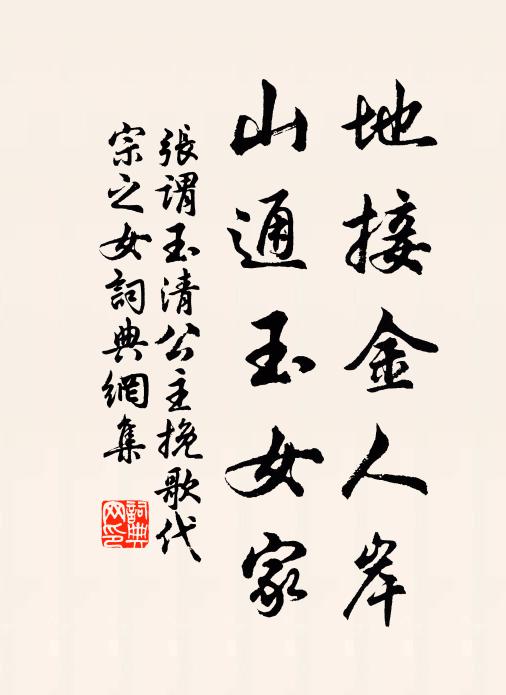 地接金人岸
山通玉女家
張謂玉清公主挽歌代
宗之女詞典網集
詞典网印